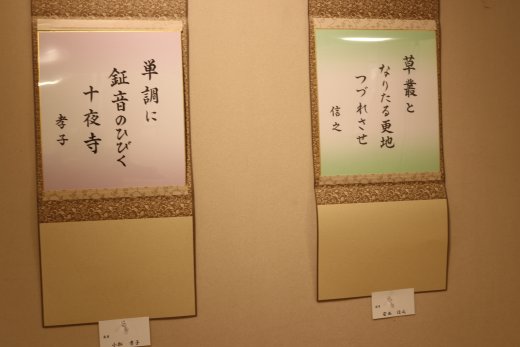 草叢と
なりたる更地
つづれさせ
信之
単調に
鉦音のひびく
十夜寺
孝子